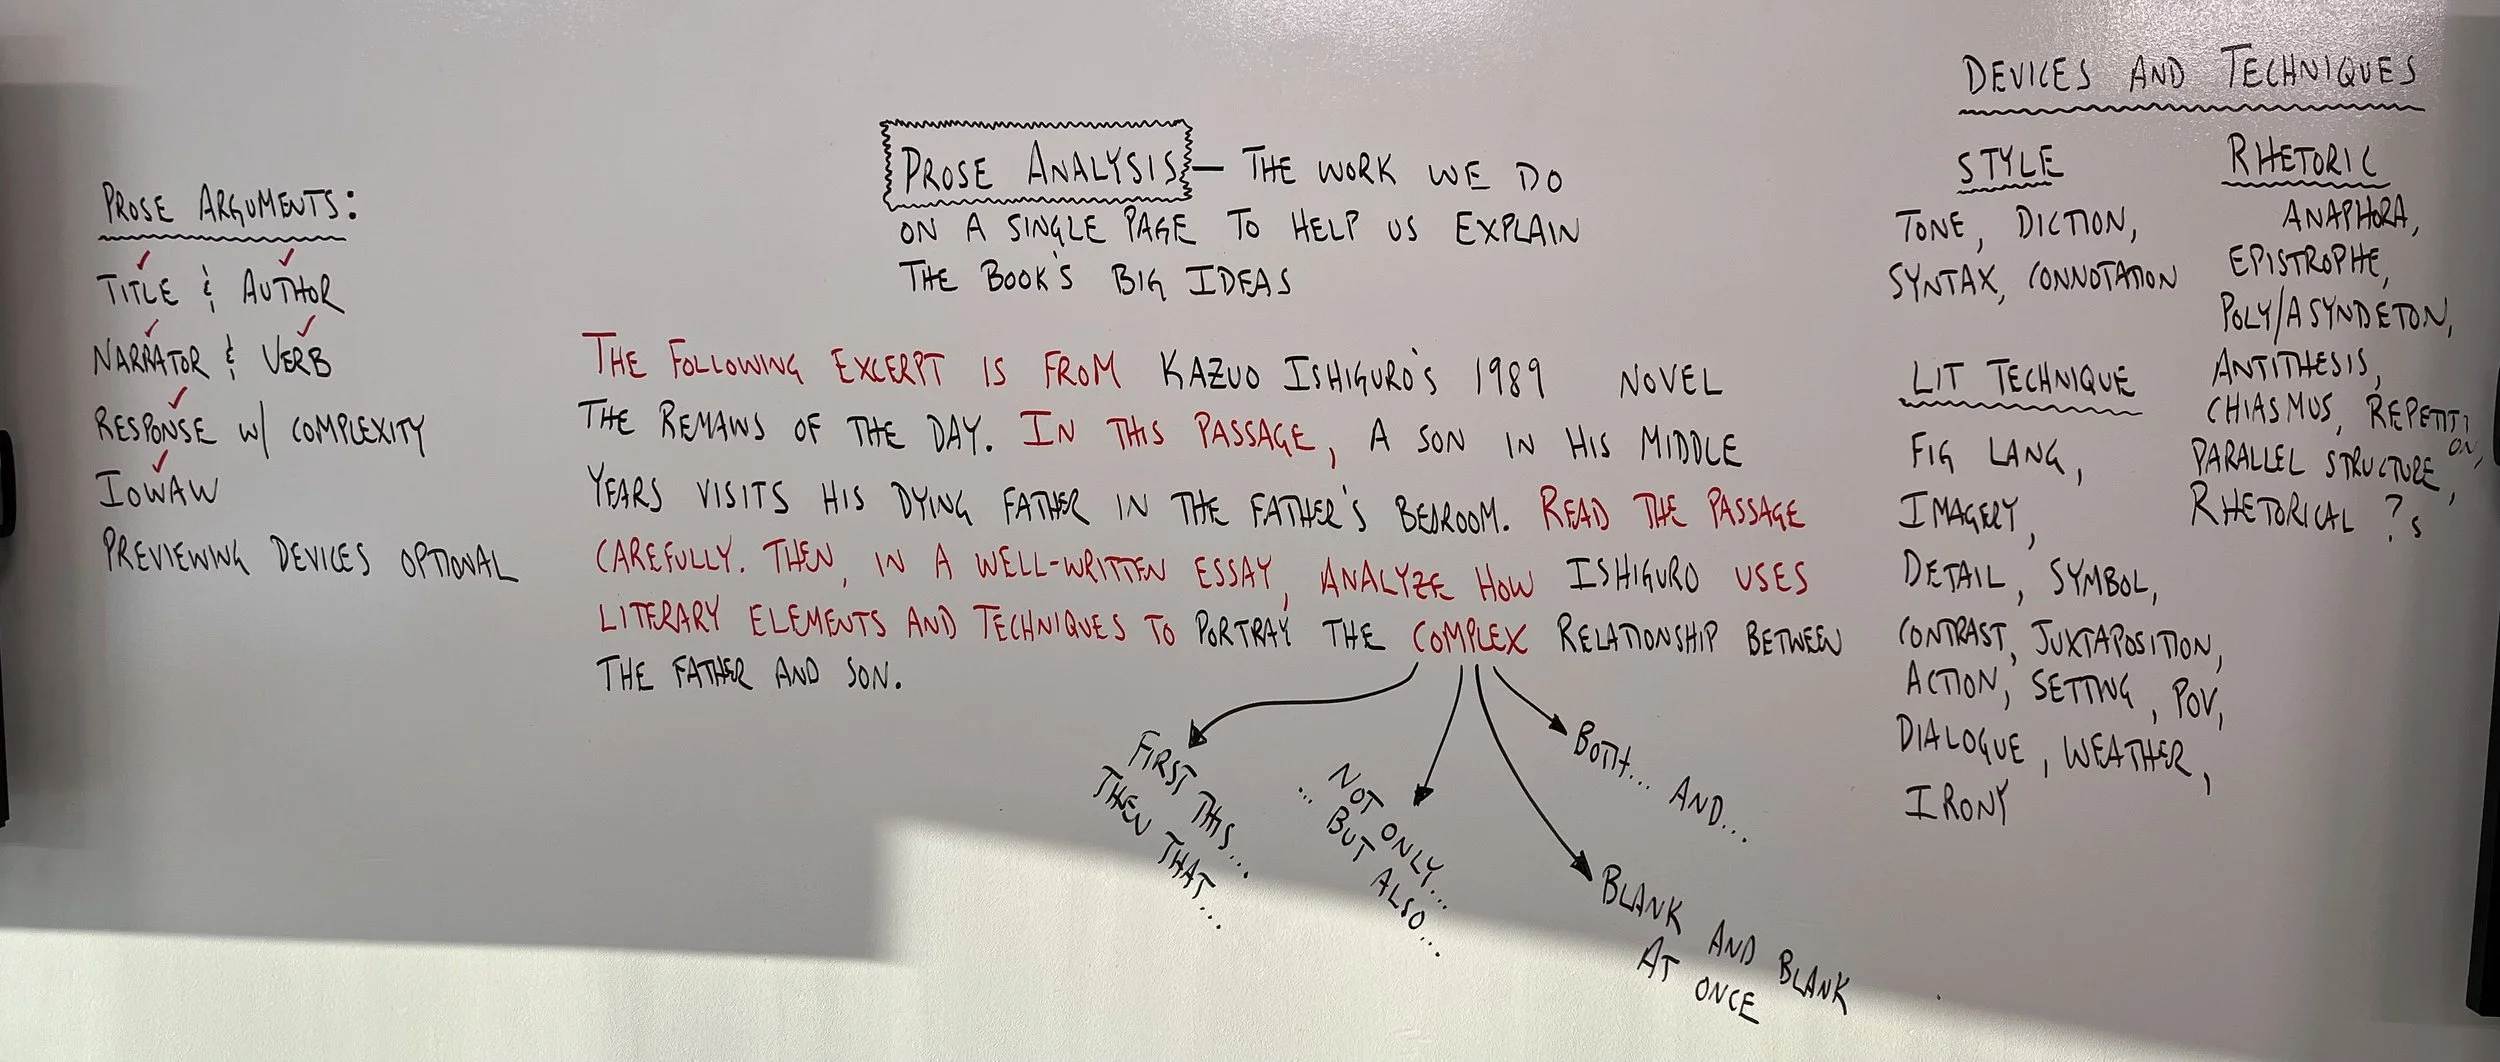 PROSE ARGUMENTS:
TITLE & AUTHOR
NARRATOR & VERB
RESPONSE W/ COMPLEXITY
IOWAW
PREVIEWING DEVICES OPTIONAL
PROSE ANALYSIS — THE WORK WE DO
ON A SINGLE PAGE TO HELP US EXPLAIN
THE BOOK'S BIG IDEAS
THE FOLLOWING EXCERPT IS FROM KAZUO ISHIGURO'S 1989 NOVEL
THE REMAINS OF THE DAY. IN THIS PASSAGE, A SON IN HIS MIDDLE
YEARS VISITS HIS DYING FATHER IN THE FATHER'S BEDROOM. READ THE PASSAGE
CAREFULLY. THEN, IN A WELL-WRITTEN ESSAY, ANALYZE HOW ISHIGURO USES
LITERARY ELEMENTS AND TECHNIQUES TO PORTRAY THE COMPLEX RELATIONSHIP BETWEEN
THE FATHER AND SON.
FIRST THIS...
THEN THAT...
NOT ONLY...
... BUT ALSO...
BOTH... AND...
BLANK AND BLANK
AT ONCE
DEVICES AND TECHNIQUES
STYLE
TONE, DICTION,
SYNTAX, CONNOTATION
LIT TECHNIQUE
FIG LANG,
IMAGERY,
DETAIL, SYMBOL,
CONTRAST, JUXTAPOSITION,
ACTION, SETTING, POV,
DIALOGUE, WEATHER,
IRONY
RHETORIC
ANAPHORA,
EPISTROPHE,
POLY/ASYNDETON,
ANTITHESIS,
CHIASMUS, REPETITION,
PARALLEL STRUCTURE,
RHETORICAL ?s